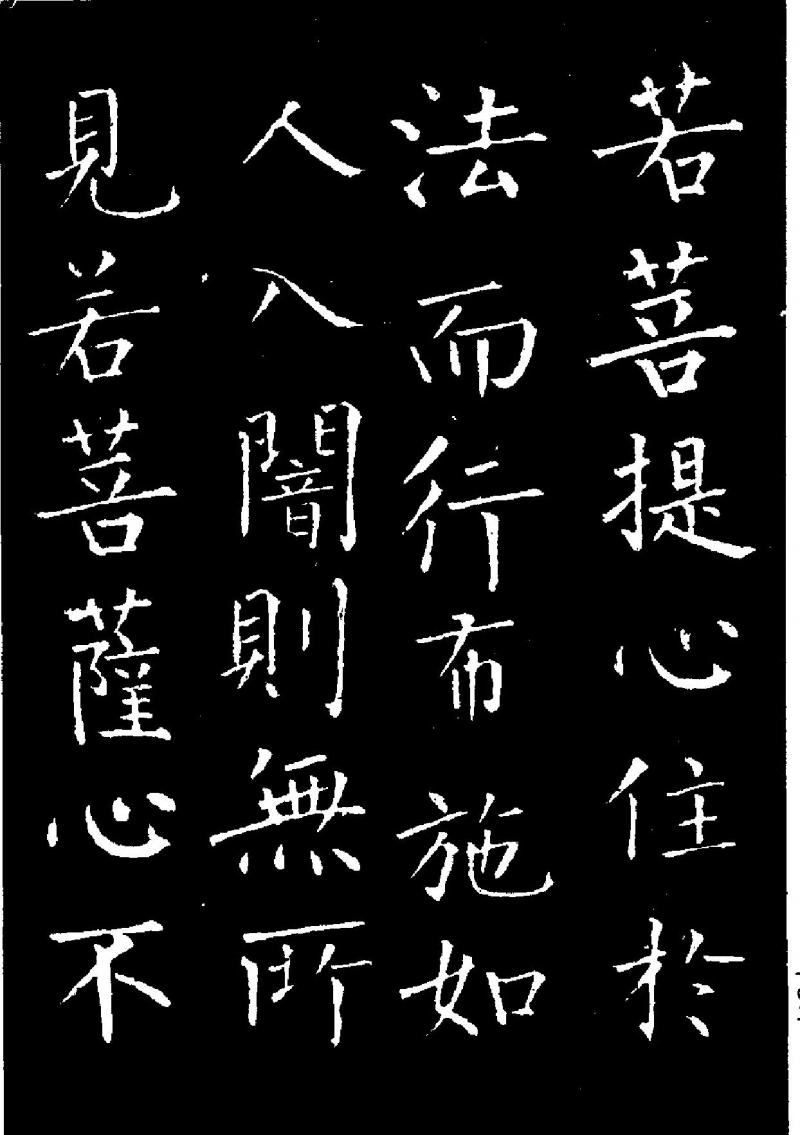 若菩提心住於
法而行布施如
人入闇則無所
見若菩薩心不